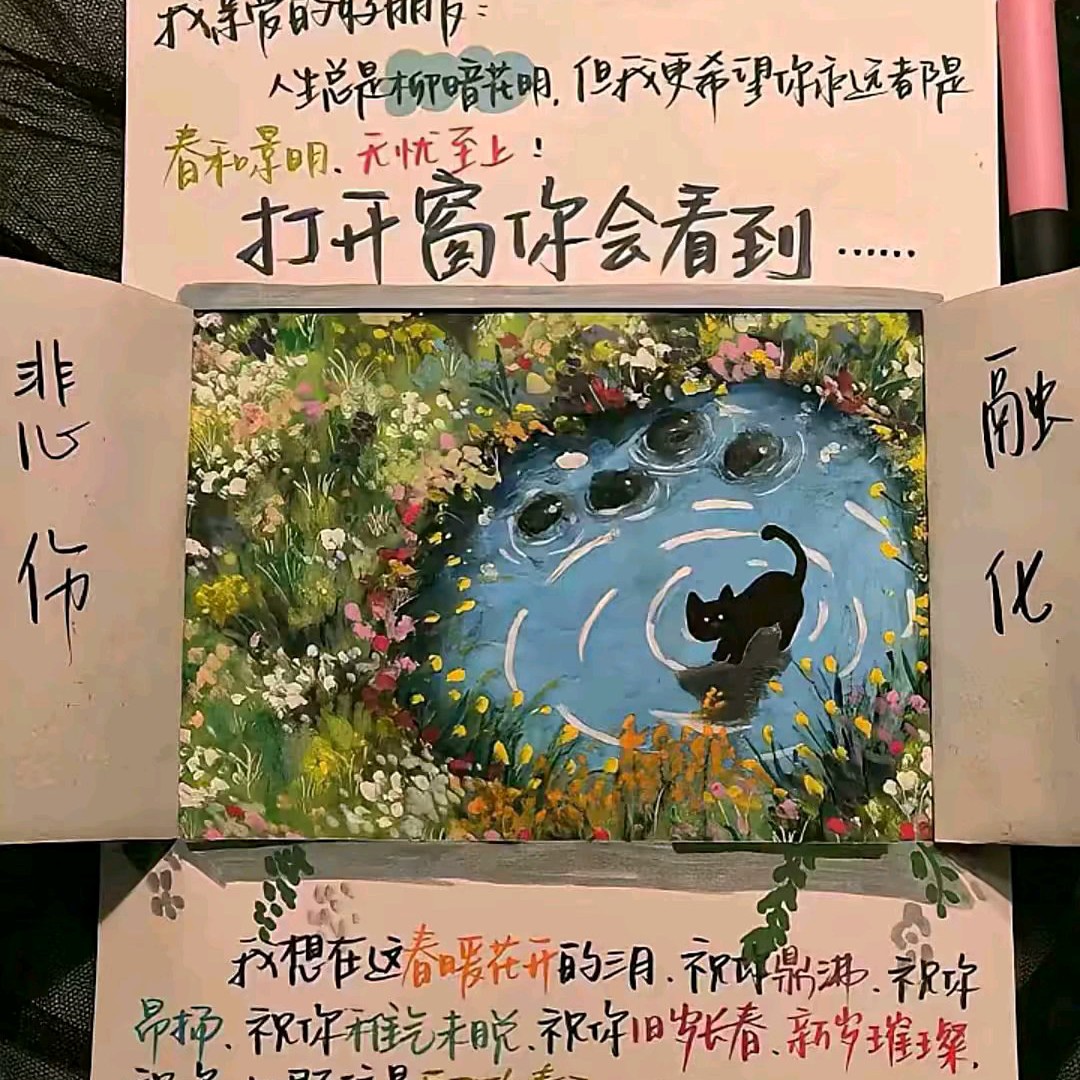 我亲爱的好朋友：
人生总是柳暗花明，但我更希望你永远都是
春和景明、无忧至上！
打开窗你会看到……
悲伤
融化
我想在这春暖花开的三月、祝你鼎沸、祝你
昂扬、祝你稚气未脱、祝你旧岁长春、新岁璀璨，